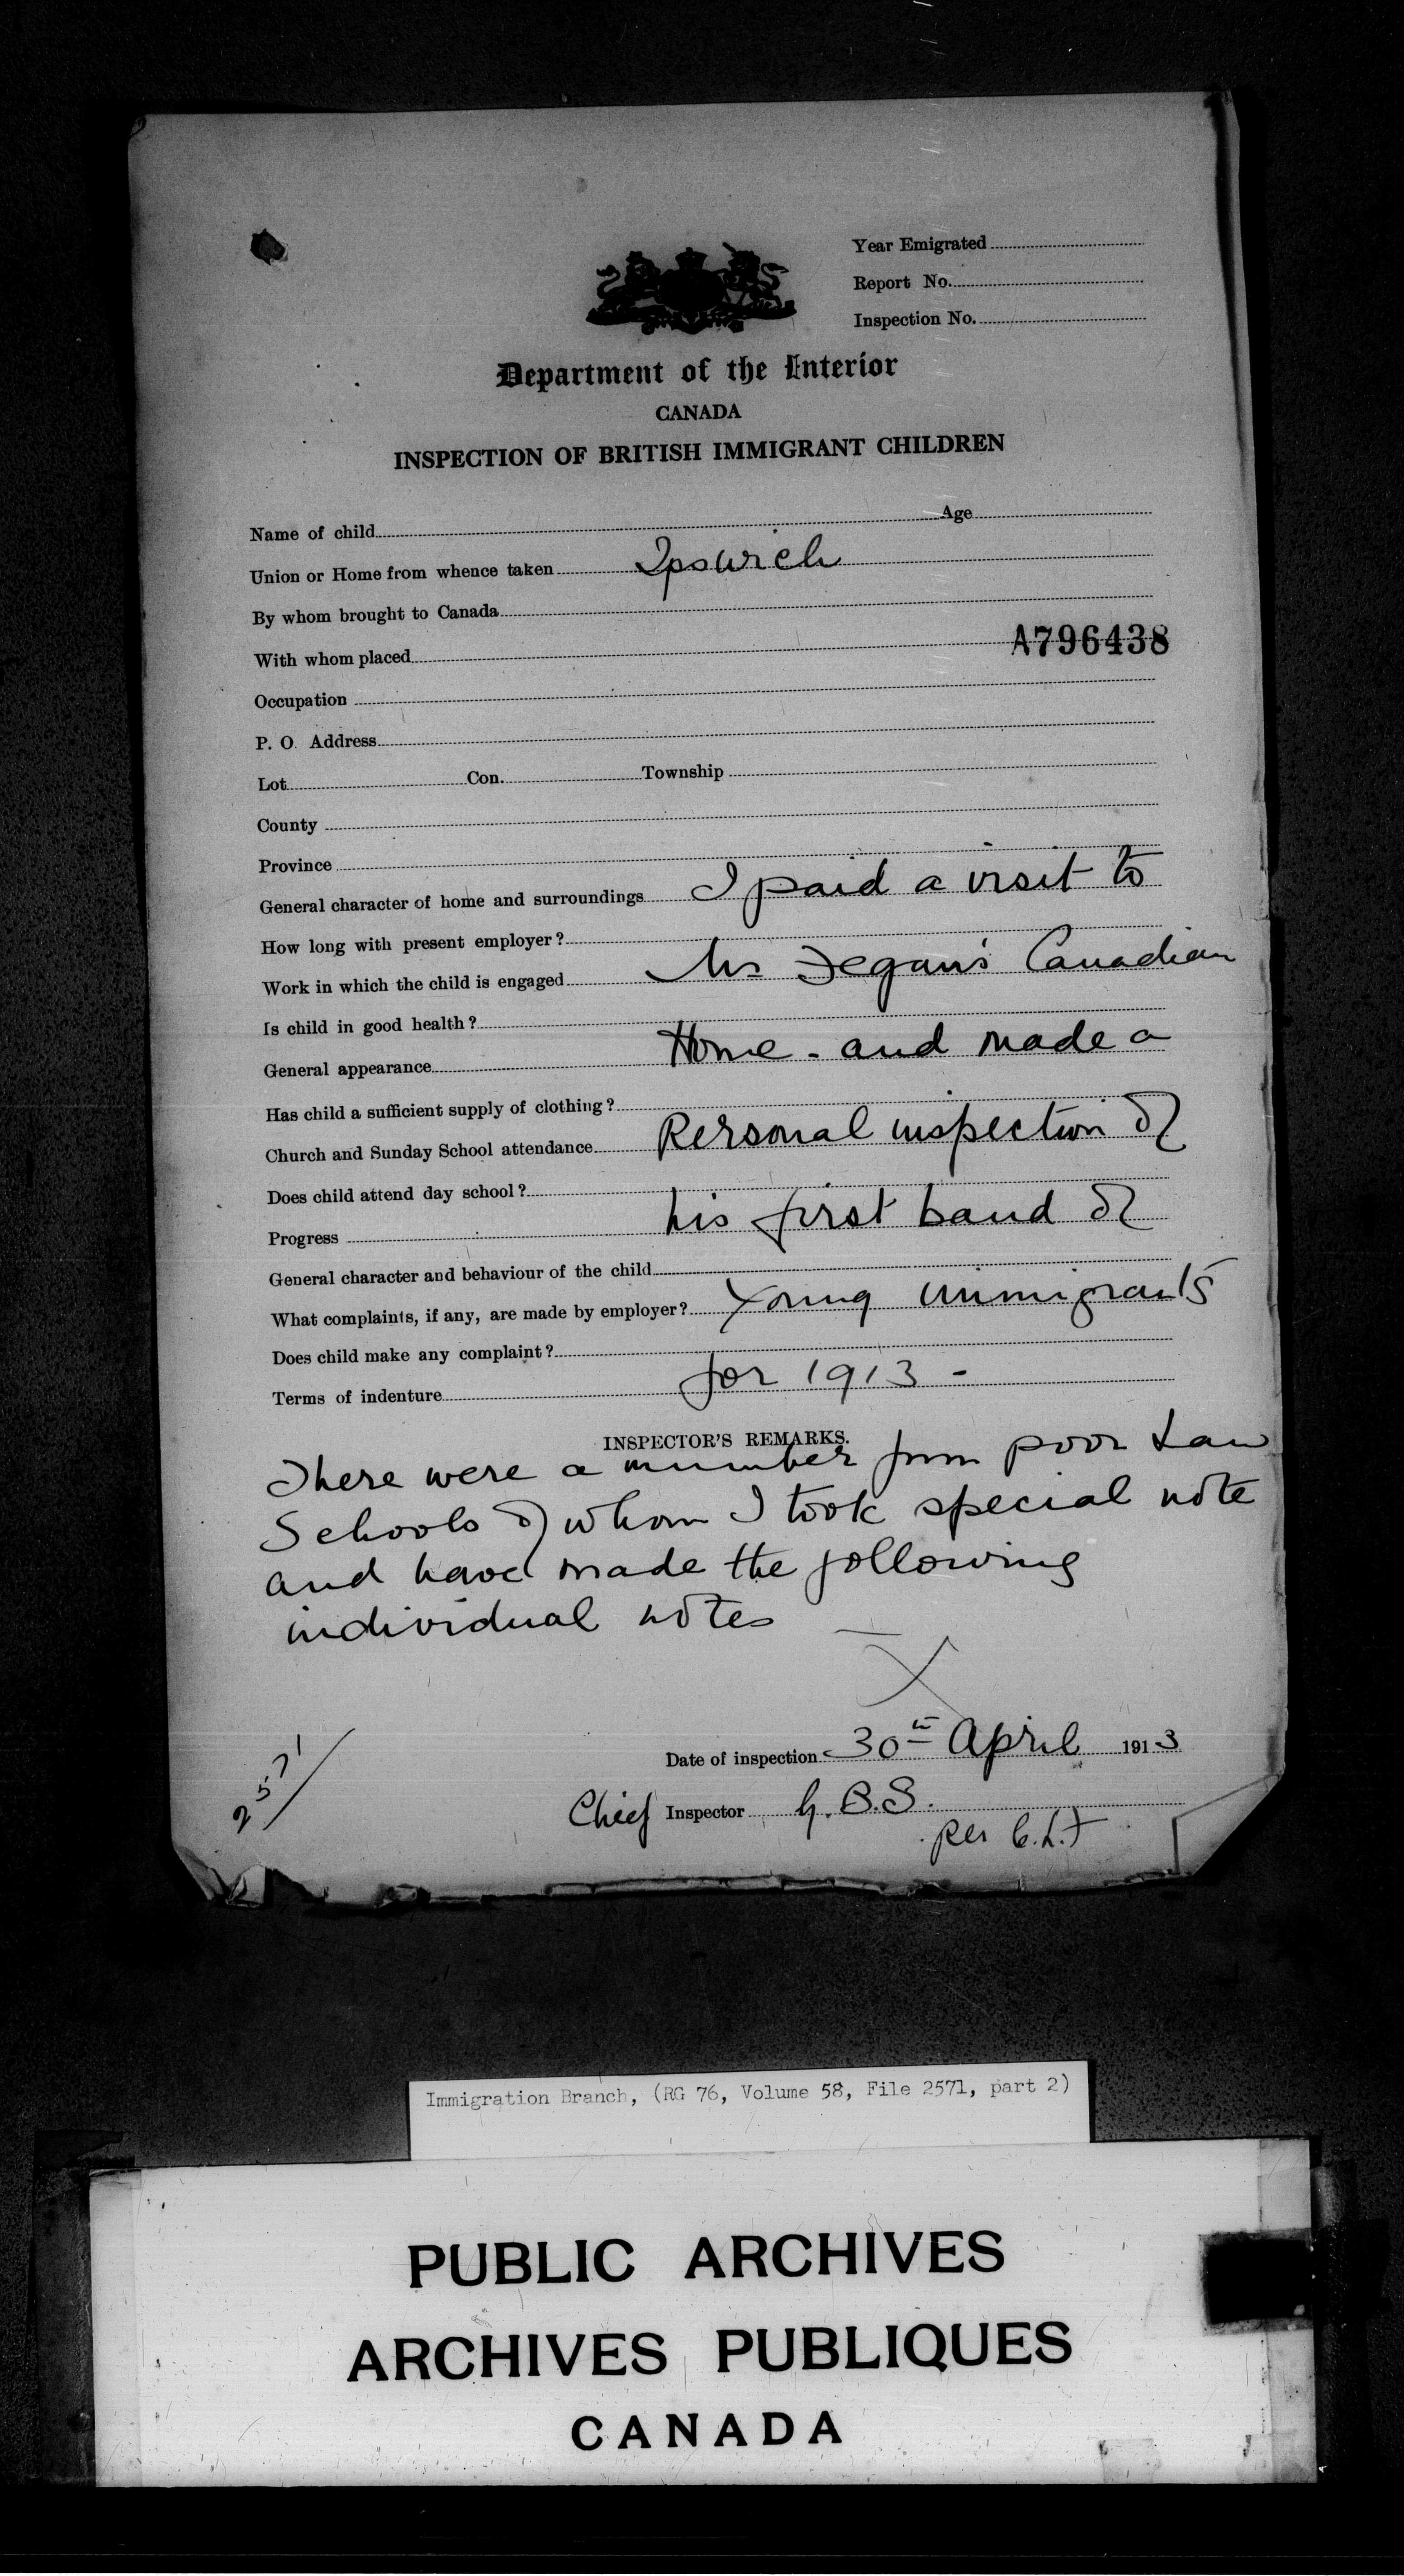 Year Emigrated
Report No.
Inspection No.
Department of the Interior
CANADA
INSPECTION OF BRITISH IMMIGRANT CHILDREN
Name of child Age
Union or Home from whence taken Ipswich
By whom brought to Canada
With whom placed A796438
Occupation
P. O. Address
Lot Con. Township
County
Province
General character of home and surroundings I paid a visit to
How long with present employer?
Work in which the child is engaged Mr Fegan's Canadian
Is child in good health?
General appearance Home - and made a
Has child a sufficient supply of clothing?
Church and Sunday School attendance Personal inspection of
Does child attend day school?
Progress his first band of
General character and behaviour of the child
What complaints, if any, are made by employer? Young immigrants
Does child make any complaint?
Terms of indenture for 1913 -
INSPECTOR'S REMARKS.
There were a number from poor Law
Schools of whom I took special note
and have made the following
individual notes
2571
Date of inspection 30th April 1913
Chief Inspector G.B.S.
per
Immigration Branch, (RG 76, Volume 58, File 2571, part 2)
PUBLIC ARCHIVES
ARCHIVES PUBLIQUES
CANADA